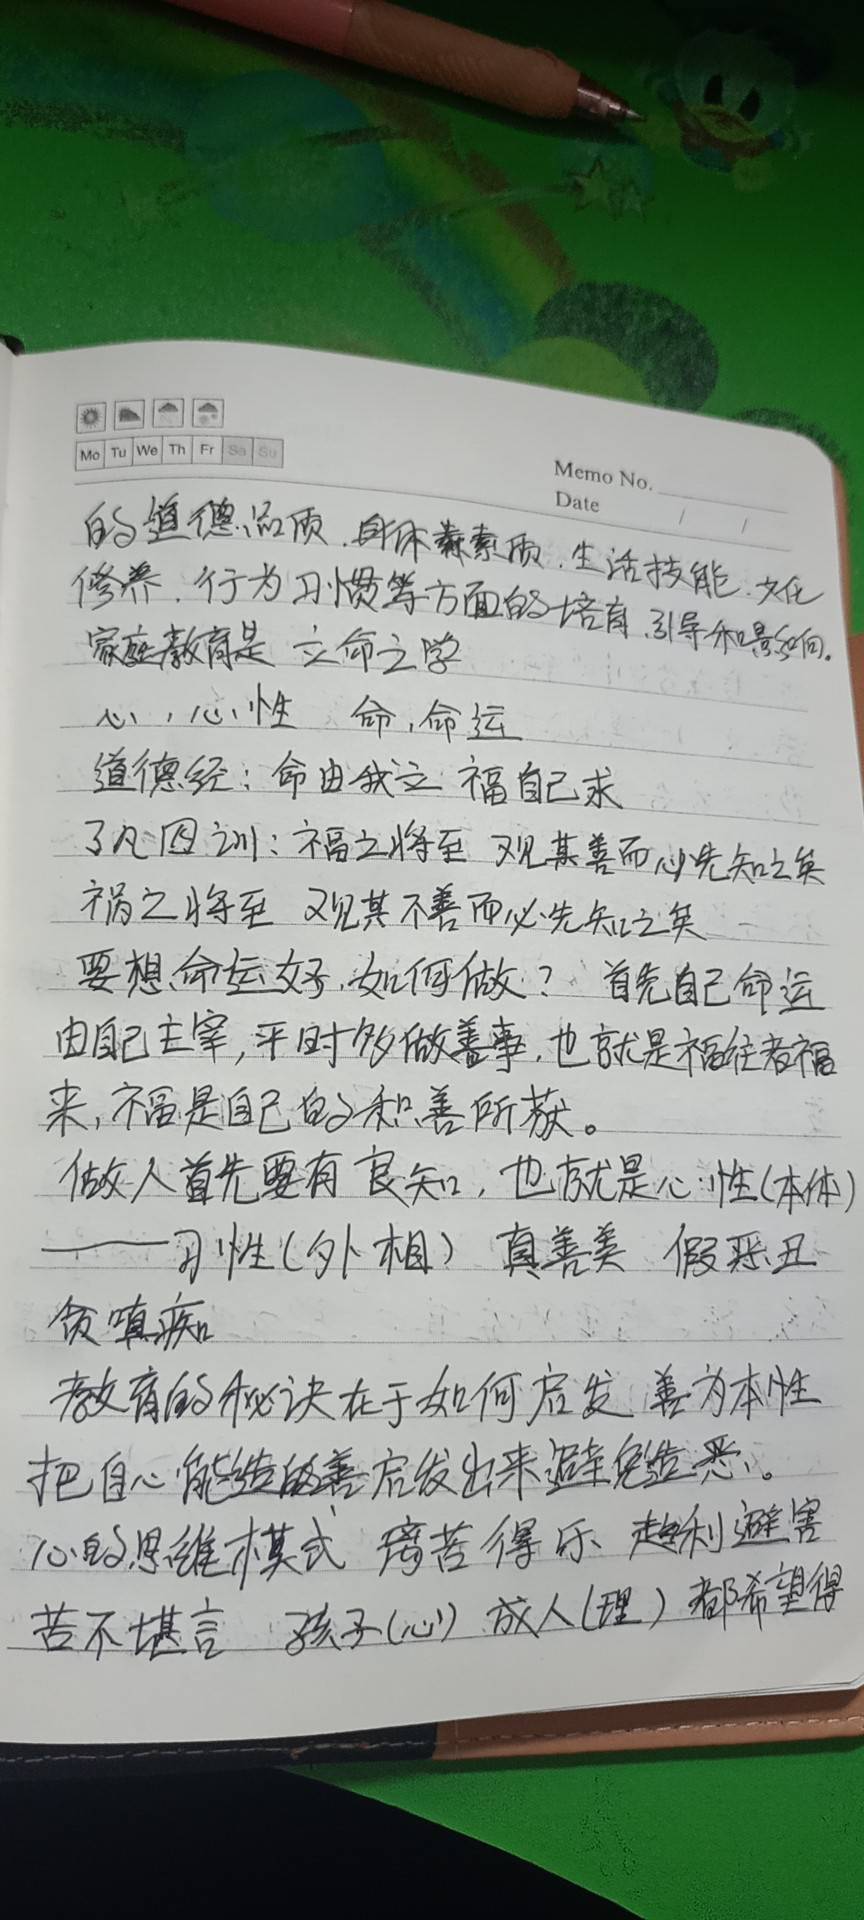 Mo Tu We Th Fr Sa Su
Memo No.
Date / /
的道德品质、身体素质、生活技能、文化
修养、行为习惯等方面的培育、引导和影响。
家庭教育是 立命之学
心，心性 命，命运
道德经：命由我立 福自己求
了凡四训：福之将至 观其善而必先知之矣
祸之将至 观其不善而必先知之矣
要想命运好，如何做？ 首先自己命运
由自己主宰，平时多做善事，也就是福往者福
来，福是自己的积善所获。
做人首先要有良知，也就是心性(本体)
——习性(外相) 真善美 假恶丑
贪嗔痴
教育的秘诀在于如何启发 善为本性
把自心能造的善启发出来避免造恶。
心的思维模式 离苦得乐 趋利避害
苦不堪言 孩子(心) 成人(理) 都希望得